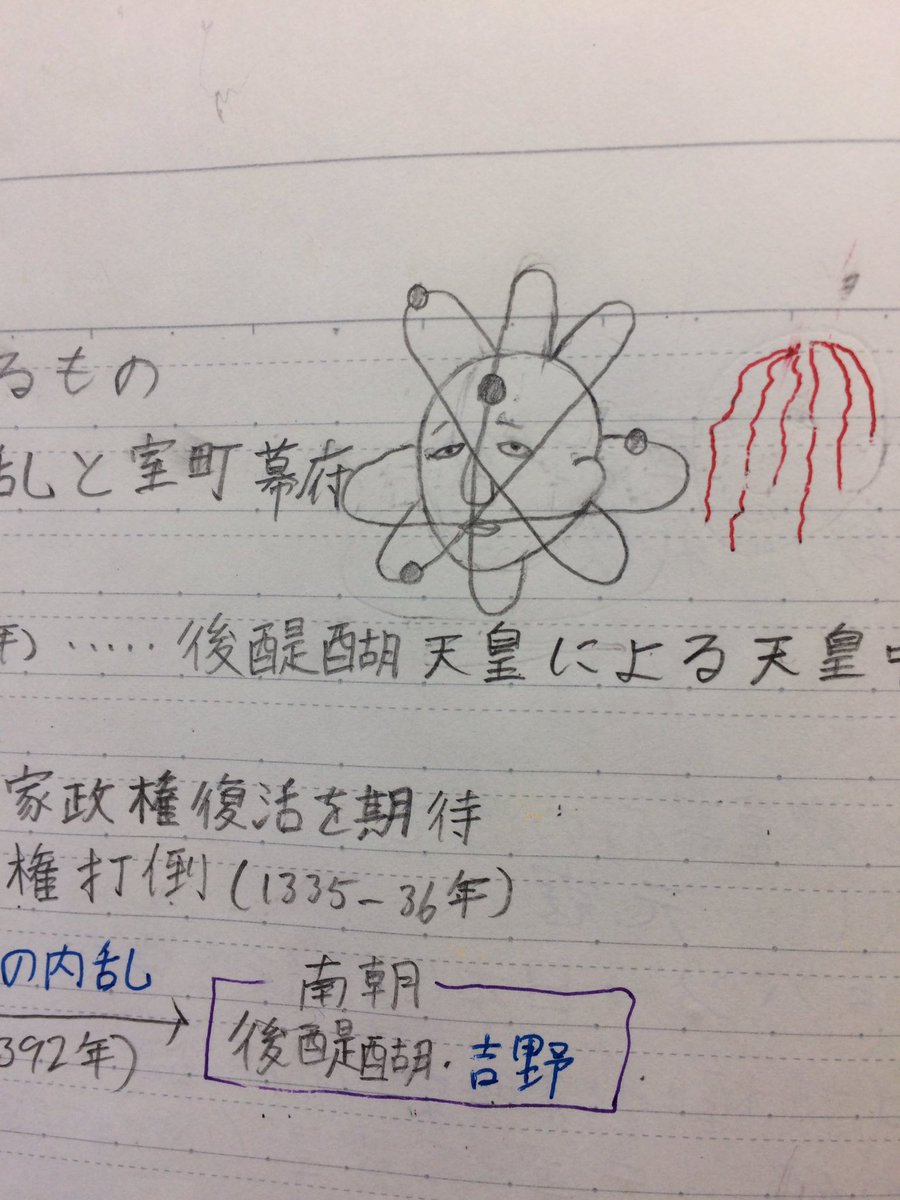 るもの
乱と室町幕府
年)‥‥‥後醍醐天皇による天皇中
家政権復活を期待
権打倒(1335-36年)
の内乱
南朝
392年)
後醍醐・吉野